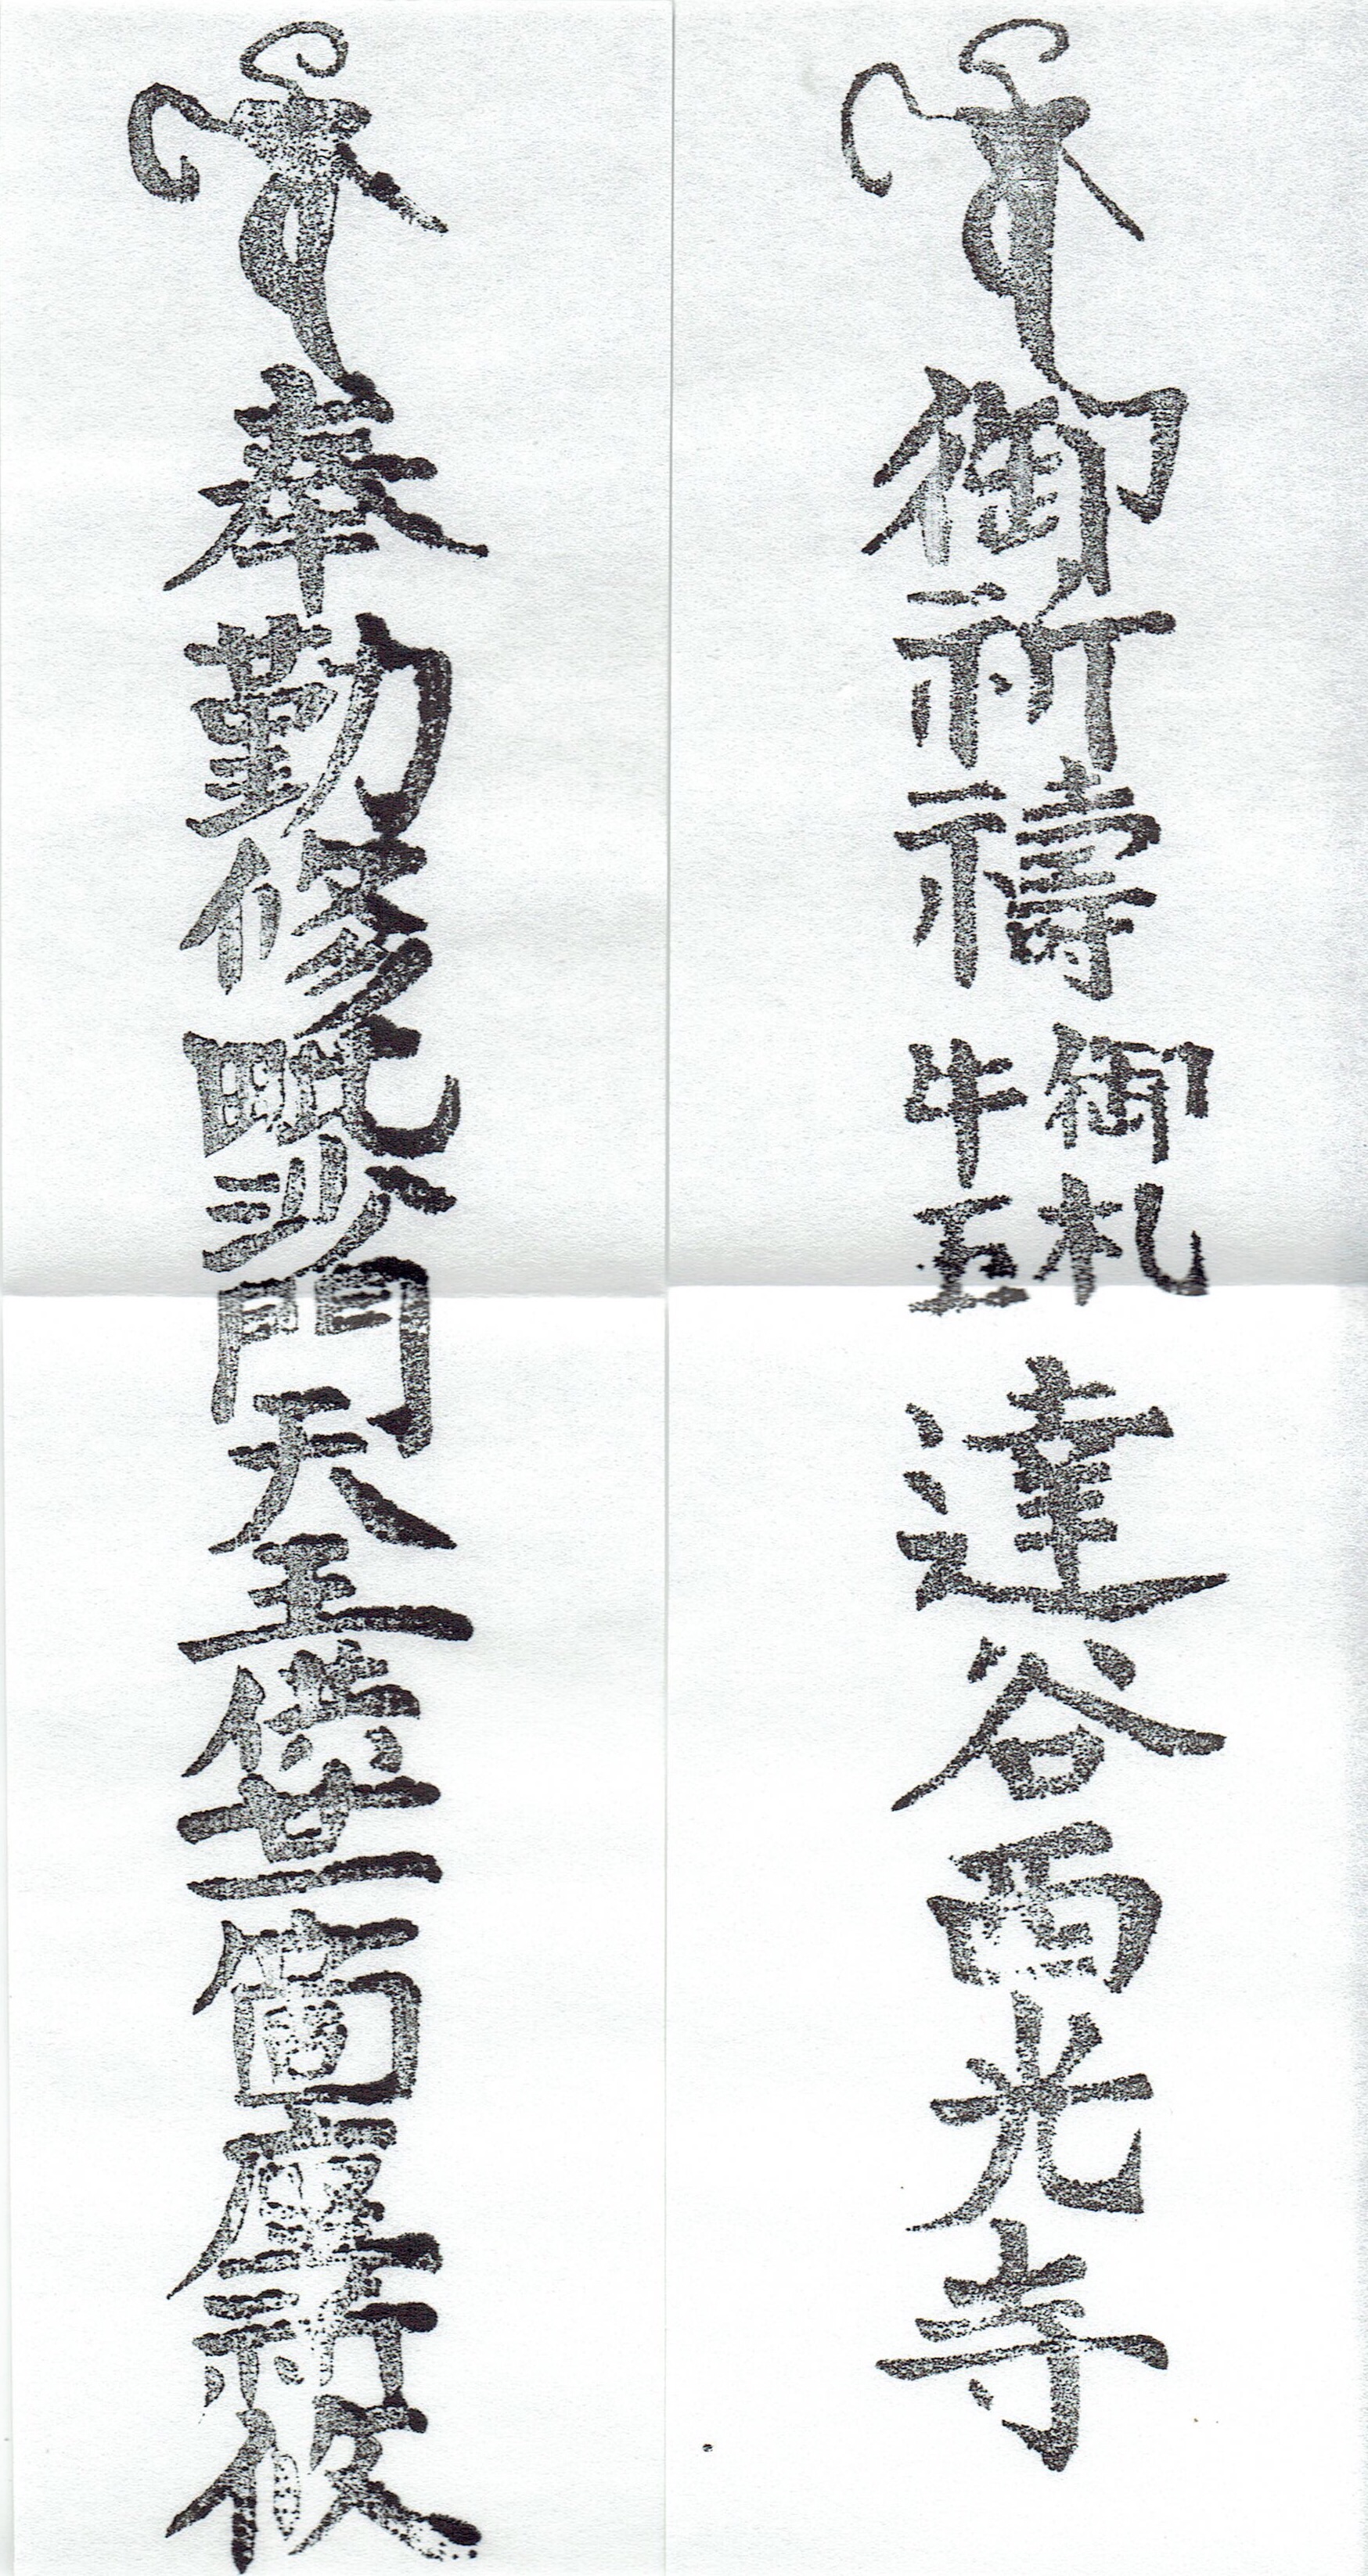 御祈禱
御札
牛玉
達谷西光寺
奉勤修毗沙門天王供廿一箇座祈攸